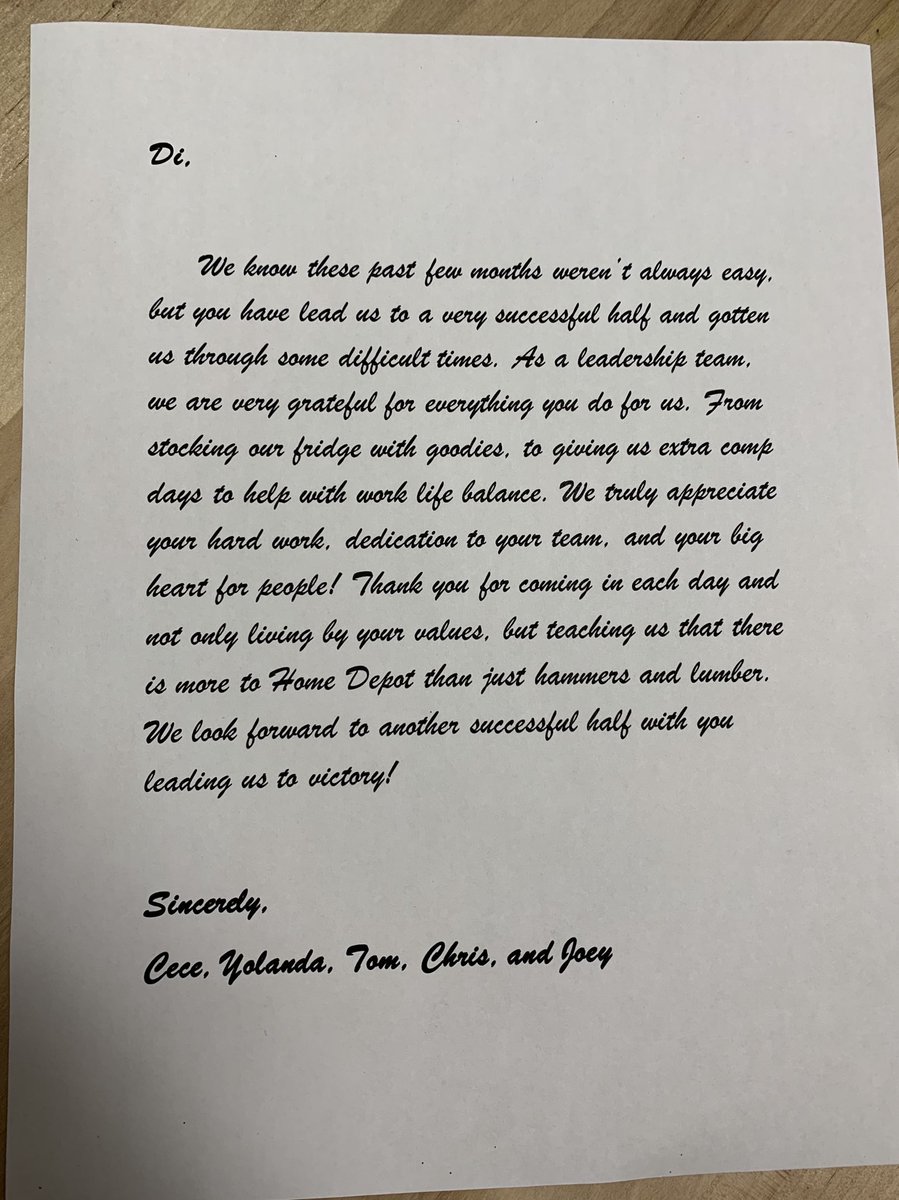 Di,
We know these past few months weren't always easy,
but you have lead us to a very successful half and gotten
us through some difficult times. As a leadership team,
we are very grateful for everything you do for us. From
stocking our fridge with goodies, to giving us extra comp
days to help with work life balance. We truly appreciate
your hard work, dedication to your team, and your big
heart for people! Thank you for coming in each day and
not only living by your values, but teaching us that there
is more to Home Depot than just hammers and lumber.
We look forward to another successful half with you
leading us to victory!
Sincerely,
Cece, Yolanda, Tom, Chris, and Joey